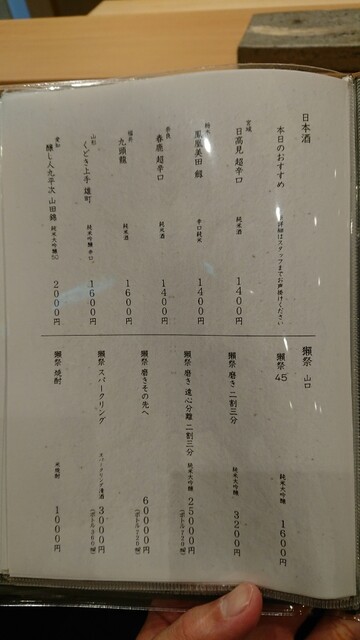 日本酒
本日のおすすめ
詳細はスタッフまでお声掛けください
宮城
日高見 超辛口 純米酒 1400円
栃木
鳳凰美田 辛口純米 1400円
奈良
春鹿 超辛口 純米酒 1400円
福井
九頭龍 純米酒 1600円
山形
くどき上手 雄町 純米吟醸 辛口 1600円
愛知
醸し人九平次 山田錦 純米大吟醸50 2000円
獺祭 山口
獺祭 45 純米大吟醸 1600円
獺祭 磨き 二割三分 純米大吟醸 3200円
獺祭 磨き 遠心分離 二割三分 純米大吟醸 25000円
(ボトル720㎖)
獺祭 磨きその先へ 60000円
(ボトル720㎖)
獺祭 スパークリング スパークリング清酒 3000円
(ボトル360㎖)
獺祭 焼酎 米焼酎 1000円